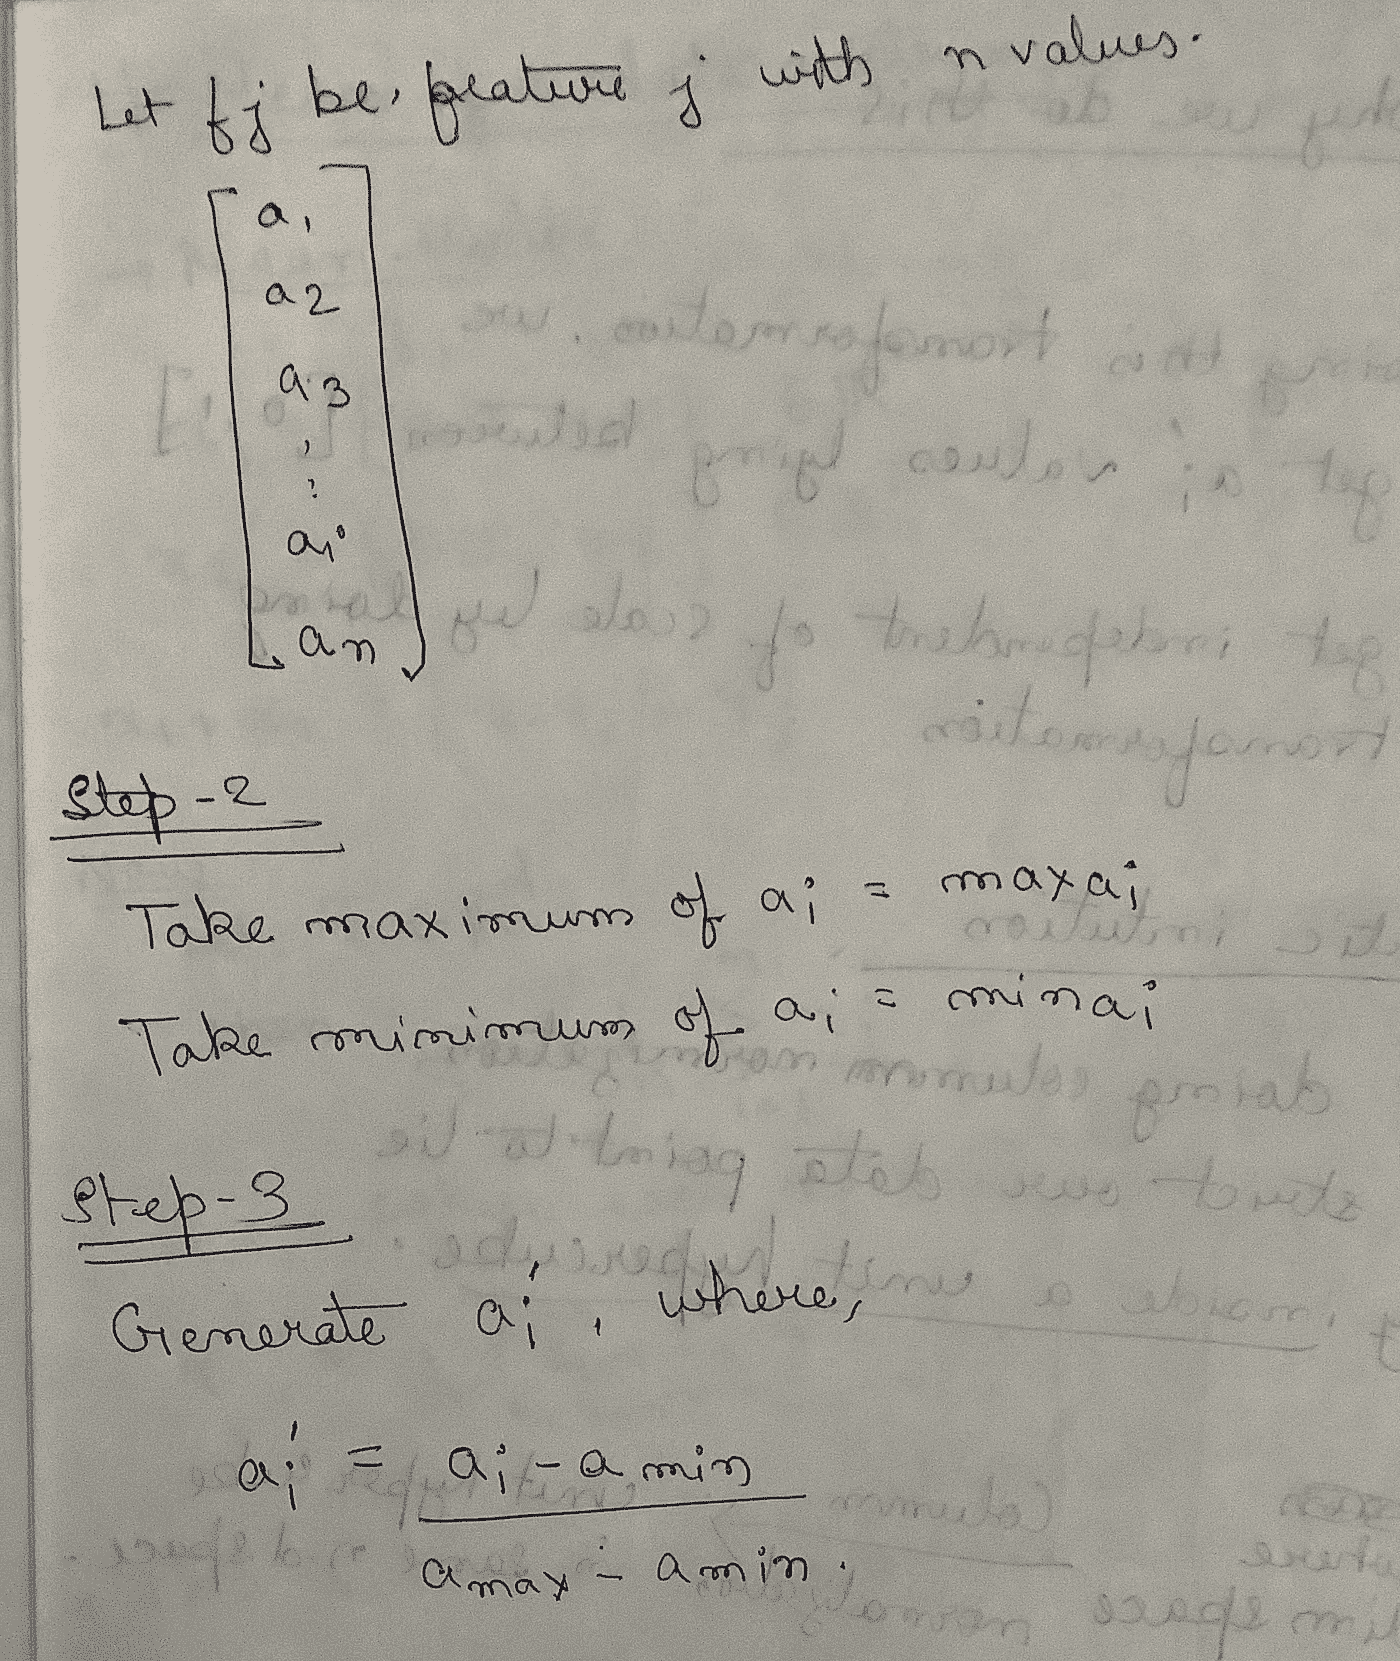 Let fj be, feature j with n values.
a1
a2
a3
ai
an
Step-2
Take maximum of ai = max ai
Take minimum of ai = min ai
Step-3
Generate ai', where,
ai' = ai - amin
amax - amin.